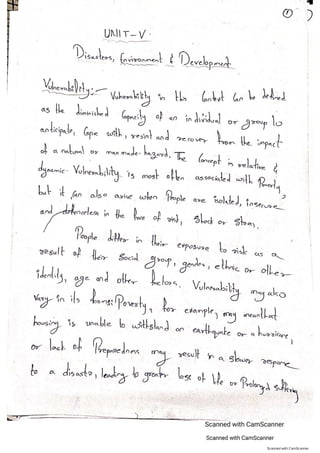 ①
UNIT-V
Disasters, Environment & Development
Vulnerability:- Vulnerability in this Context Can be defined
as the diminished Capacity of an individual or group to
anticipate, Cope with, resist and recover from the impact
of a natural or man made hazard. The Concept is relative &
dynamic. Vulnerability is most often associated with Poverty,
but it can also arise when People are isolated, insecure
and defenceless in the face of risk, Shock or Stress.
People differ in their exposure to risk as a
result of their Social group, gender, ethnic or other
identity, age and other factors. Vulnerability may also
vary in its forms: Poverty, for example, may mean that
housing is unable to withstand an earthquake or a hurricane,
or lack of Preparedness may result in a slower response
to a disaster, leading to greater loss of life or Prolonged suffering
Scanned with CamScanner
Scanned with CamScanner
Scanned with CamScanner